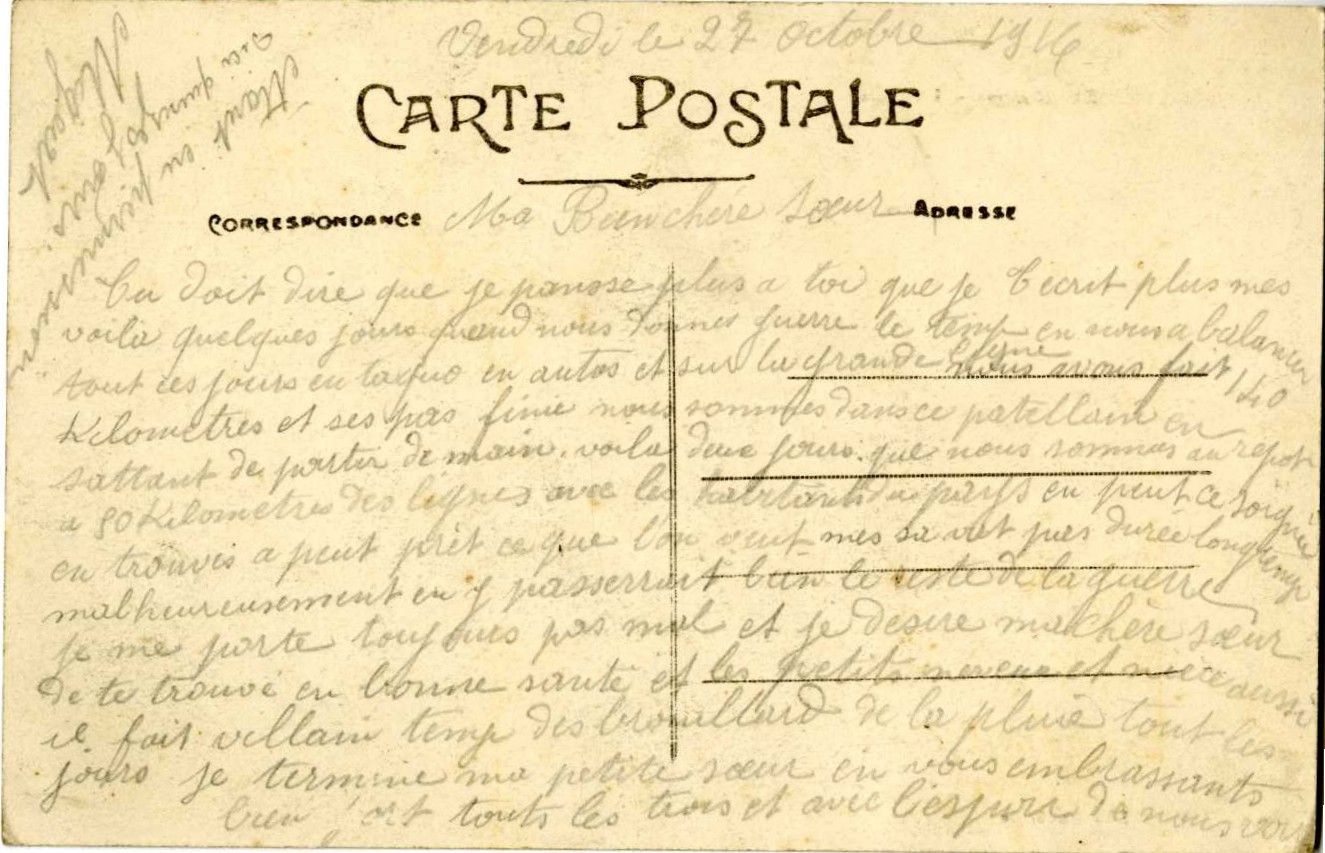 Vendredi le 27 Octobre 1916
CARTE POSTALE
CORRESPONDANCE Ma Bien chére Sœur ADRESSE
tu doit dire que je pansse plus a toi que je t'ecrit plus mes
voila quelques jours quand nous guerre le temp en nous a balancer
tout ces jours en taquo en autos et sur la grande ligne nous avons fait 140
Kilometres et ses pas finie nous sommes dans ce patellain en
sattant de partir de main. voila deux jours que nous sommes au repos
a 80 Kilometres des lignes avec les habitants du pays en peut ce soigner
en trouves a peut prêt ce que l'on veut mes sa vat pas durée longtemp
malheureusement en y passerrait bien le reste de la guerre
je me porte toujours pas mal et je desire ma chère sœur
de te trouvé en bonne santé et les petits neveux et niece aussi
il fait villain temp des brouillard de la pluie tout les
jours je termine ma petite sœur en vous embrassants
bien fort touts les trois et avec l'espoir de nous voir